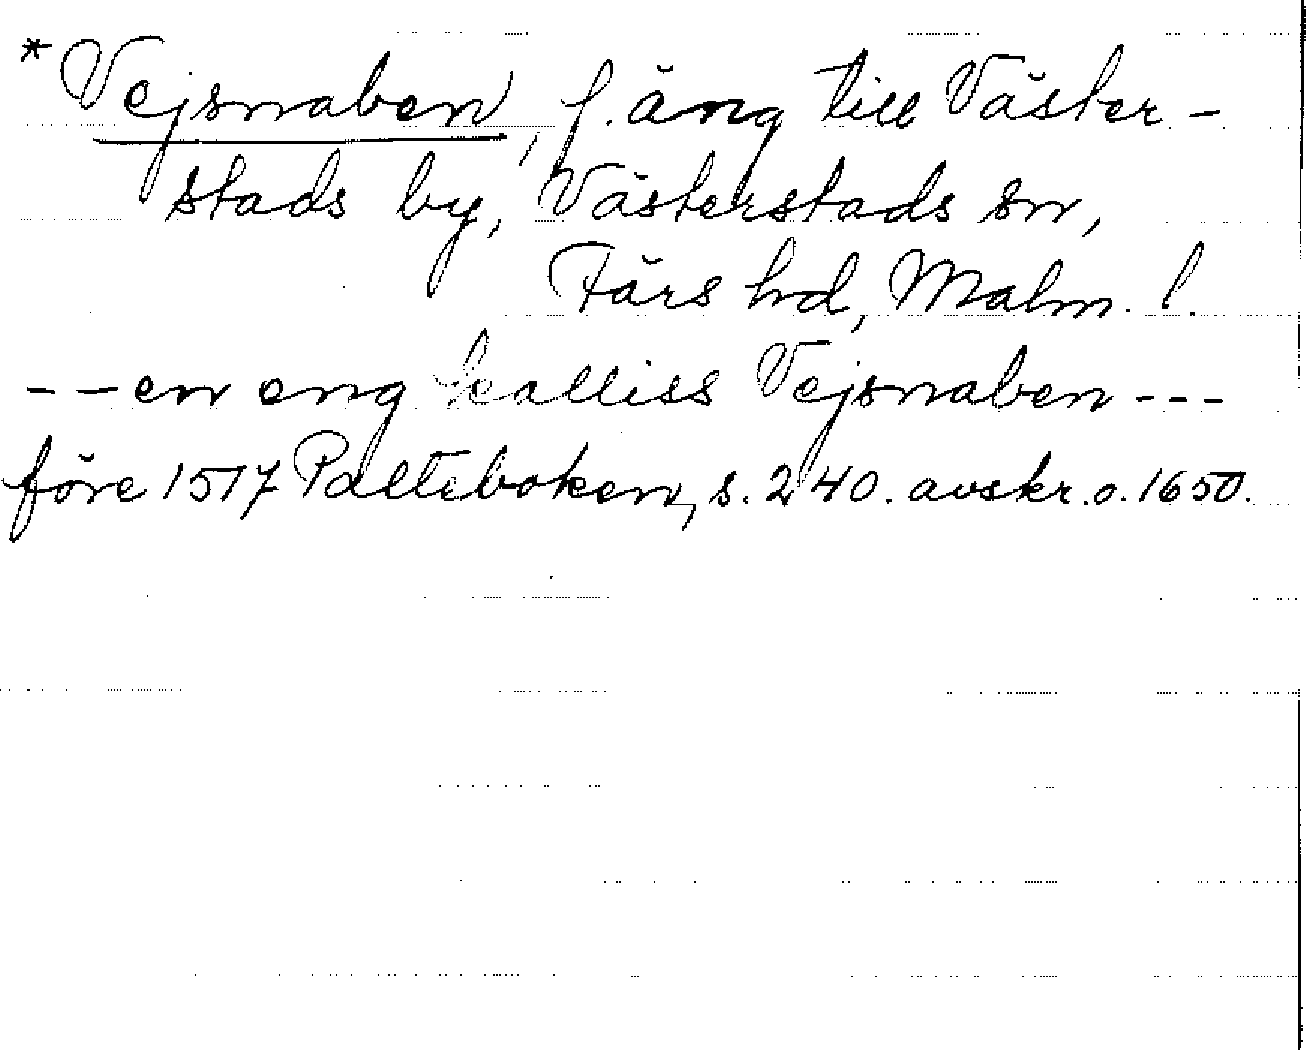 *Vejsnaben, f. äng till Väster-
stads by, Västerstads sn,
Färs hd, Malm. l.
--en eng kalliss Vejsnaben---
före 1517 Palteboken, s. 240. avskr. o. 1650.